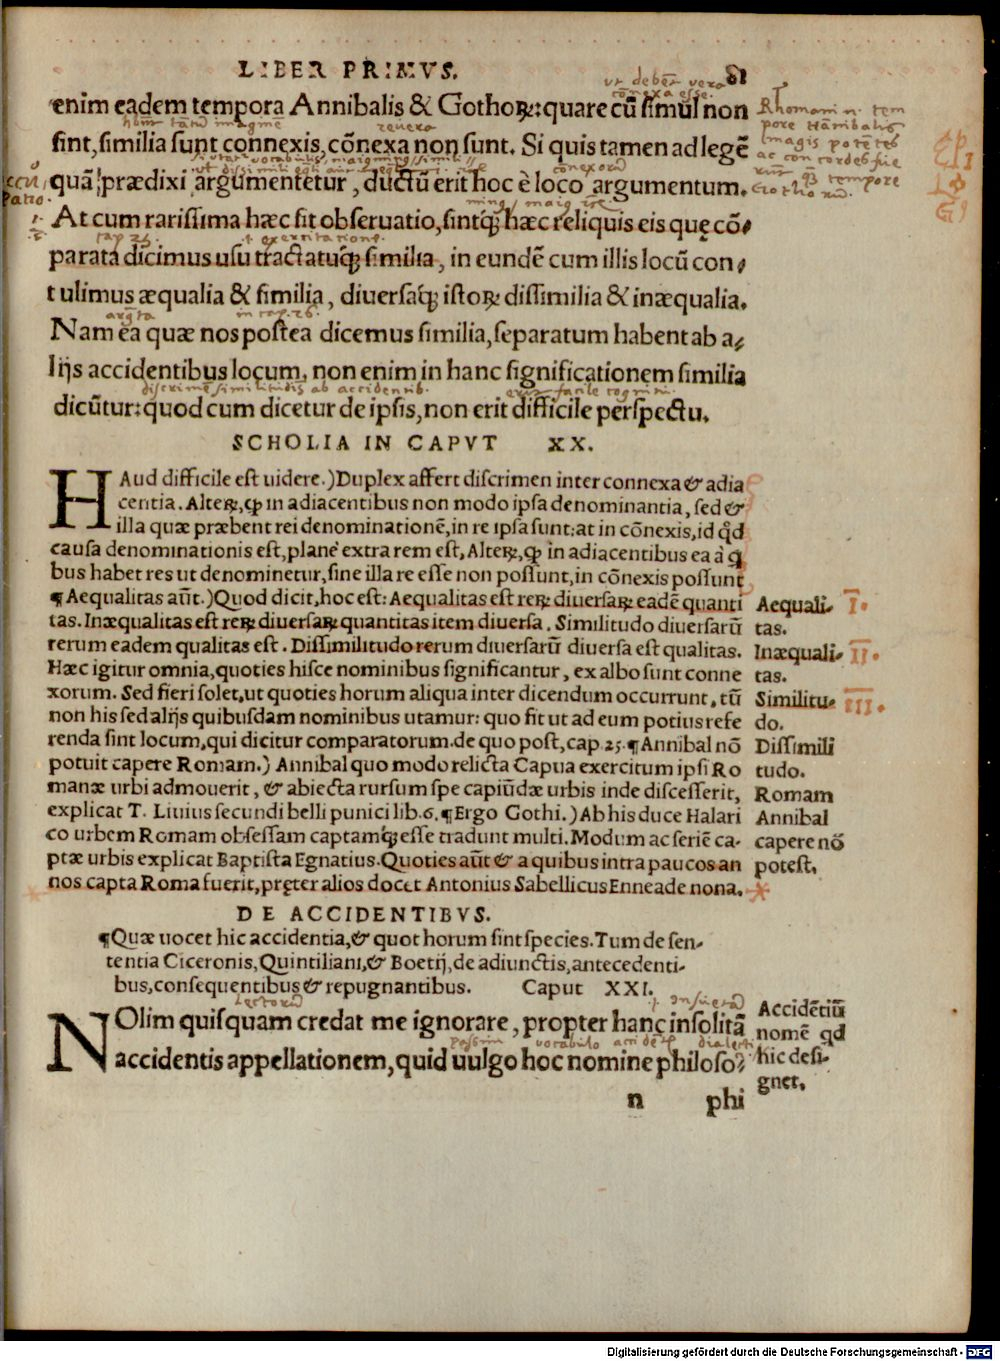 LIBER PRIMVS. 81
enim eadem tempora Annibalis & Gothoꝝ: quare cū simul non
sint, similia sunt connexis, cōnexa non sunt. Si quis tamen ad legē
quā prædixi argumentetur, ductū erit hoc è loco argumentum.
At cum rarissima hæc fit obseruatio, sintq́ꝫ hæc reliquis eis quę cō⸗
parata dicimus usu tractatuq́ꝫ similia, in eundē cum illis locū con⸗
tulimus æqualia & similia, diuersaq́ꝫ istoꝝ dissimilia & inæqualia.
Nam ea quæ nos postea dicemus similia, separatum habent ab a⸗
lijs accidentibus locum, non enim in hanc significationem similia
dicūtur: quod cum dicetur de ipsis, non erit difficile perspectu.
SCHOLIA IN CAPVT XX.
HAud difficile est uidere.) Duplex affert discrimen inter connexa & adia
centia. Alteꝝ, ꝙ in adiacentibus non modo ipsa denominantia, sed &
illa quæ præbent rei denominationē, in re ipsa sunt: at in cōnexis, id qd̄
causa denominationis est, planè extra rem est. Alteꝝ, ꝙ in adiacentibus ea à q̄
bus habet res ut denominetur, sine illa re esse non possunt, in cōnexis possunt
¶ Aequalitas aūt.) Quod dicit, hoc est: Aequalitas est reꝝ diuersaꝝ eadē quanti
tas. Inæqualitas est reꝝ diuersaꝝ quantitas item diuersa. Similitudo diuersarū
rerum eadem qualitas est. Dissimilitudo rerum diuersarū diuersa est qualitas.
Hæc igitur omnia, quoties hisce nominibus significantur, ex albo sunt conne
xorum. Sed fieri solet, ut quoties horum aliqua inter dicendum occurrunt, tū
non his sed alijs quibusdam nominibus utamur: quo fit ut ad eum potius refe
renda sint locum, qui dicitur comparatorum. de quo post, cap. 25. ¶ Annibal nō
potuit capere Romam.) Annibal quo modo relicta Capua exercitum ipsi Ro
manæ urbi admouerit, & abiecta rursum spe capiūdæ urbis inde discesserit,
explicat T. Liuius secundi belli punici lib. 6. ¶ Ergo Gothi.) Ab his duce Halari
co urbem Romam obsessam captamq́ꝫ esse tradunt multi. Modum ac seriē ca⸗
ptæ urbis explicat Baptista Egnatius. Quoties aūt & a quibus intra paucos an
nos capta Roma fuerit, pręter alios docet Antonius Sabellicus Enneade nona.
DE ACCIDENTIBVS.
¶Quæ uocet hic accidentia, & quot horum sint species. Tum de sen⸗
tentia Ciceronis, Quintiliani, & Boetij, de adiunctis, antecedenti⸗
bus, consequentibus & repugnantibus. Caput XXI.
NOlim quisquam credat me ignorare, propter hanc insolitā
accidentis appellationem, quid uulgo hoc nomine philoso⸗
n phi
Rhomani n. tem
pore Hānibalis
magis potētes
Aequali⸗
tas.
I.
Inæquali⸗
tas.
II.
Similitu⸗
do.
III.
Dissimili
tudo.
Romam
Annibal
capere nō
potest.
Accidētiū
nomē qd
hic desi⸗
gnet.
Digitalisierung gefördert durch die Deutsche Forschungsgemeinschaft - DFG